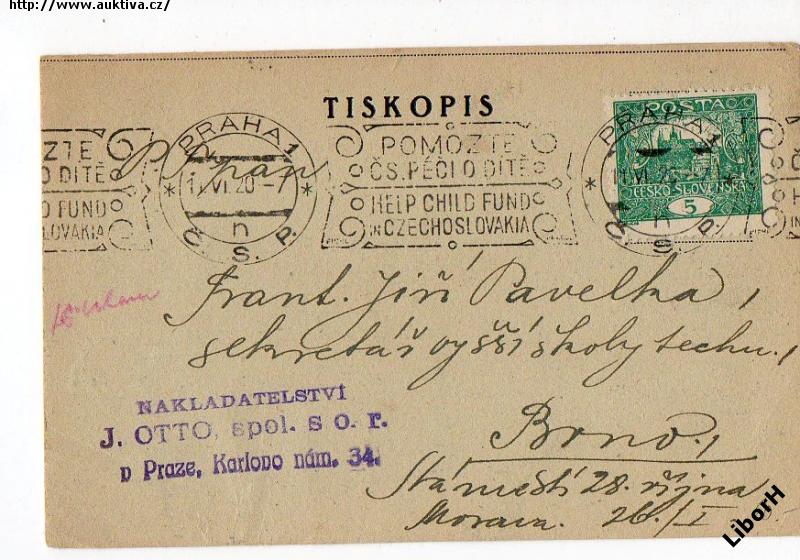 http://www.auktiva.cz/
TISKOPIS
POŠTA
ČESKO-SLOVENSKÁ
5
MOZTE
O DÍTĚ
D FUND
OVAKIA
PRAHA 1
* 11.VI.20-7 *
n
Č. S. P.
POMOZTE
ČS. PÉČI O DÍTĚ
HELP CHILD FUND
IN CZECHOSLOVAKIA
PRAHA 1
* 11.VI.20-7
n
Č. S. P.
P. T. pan
Frant. Jiří Pavelka,
sekretář vyšší školy techn.,
Brno,
Nám­ěstí 28. října
Morava. 26./I
NAKLADATELSTVÍ
J. OTTO, spol. s o. r.
v Praze, Karlovo nám. 34.
LiborH